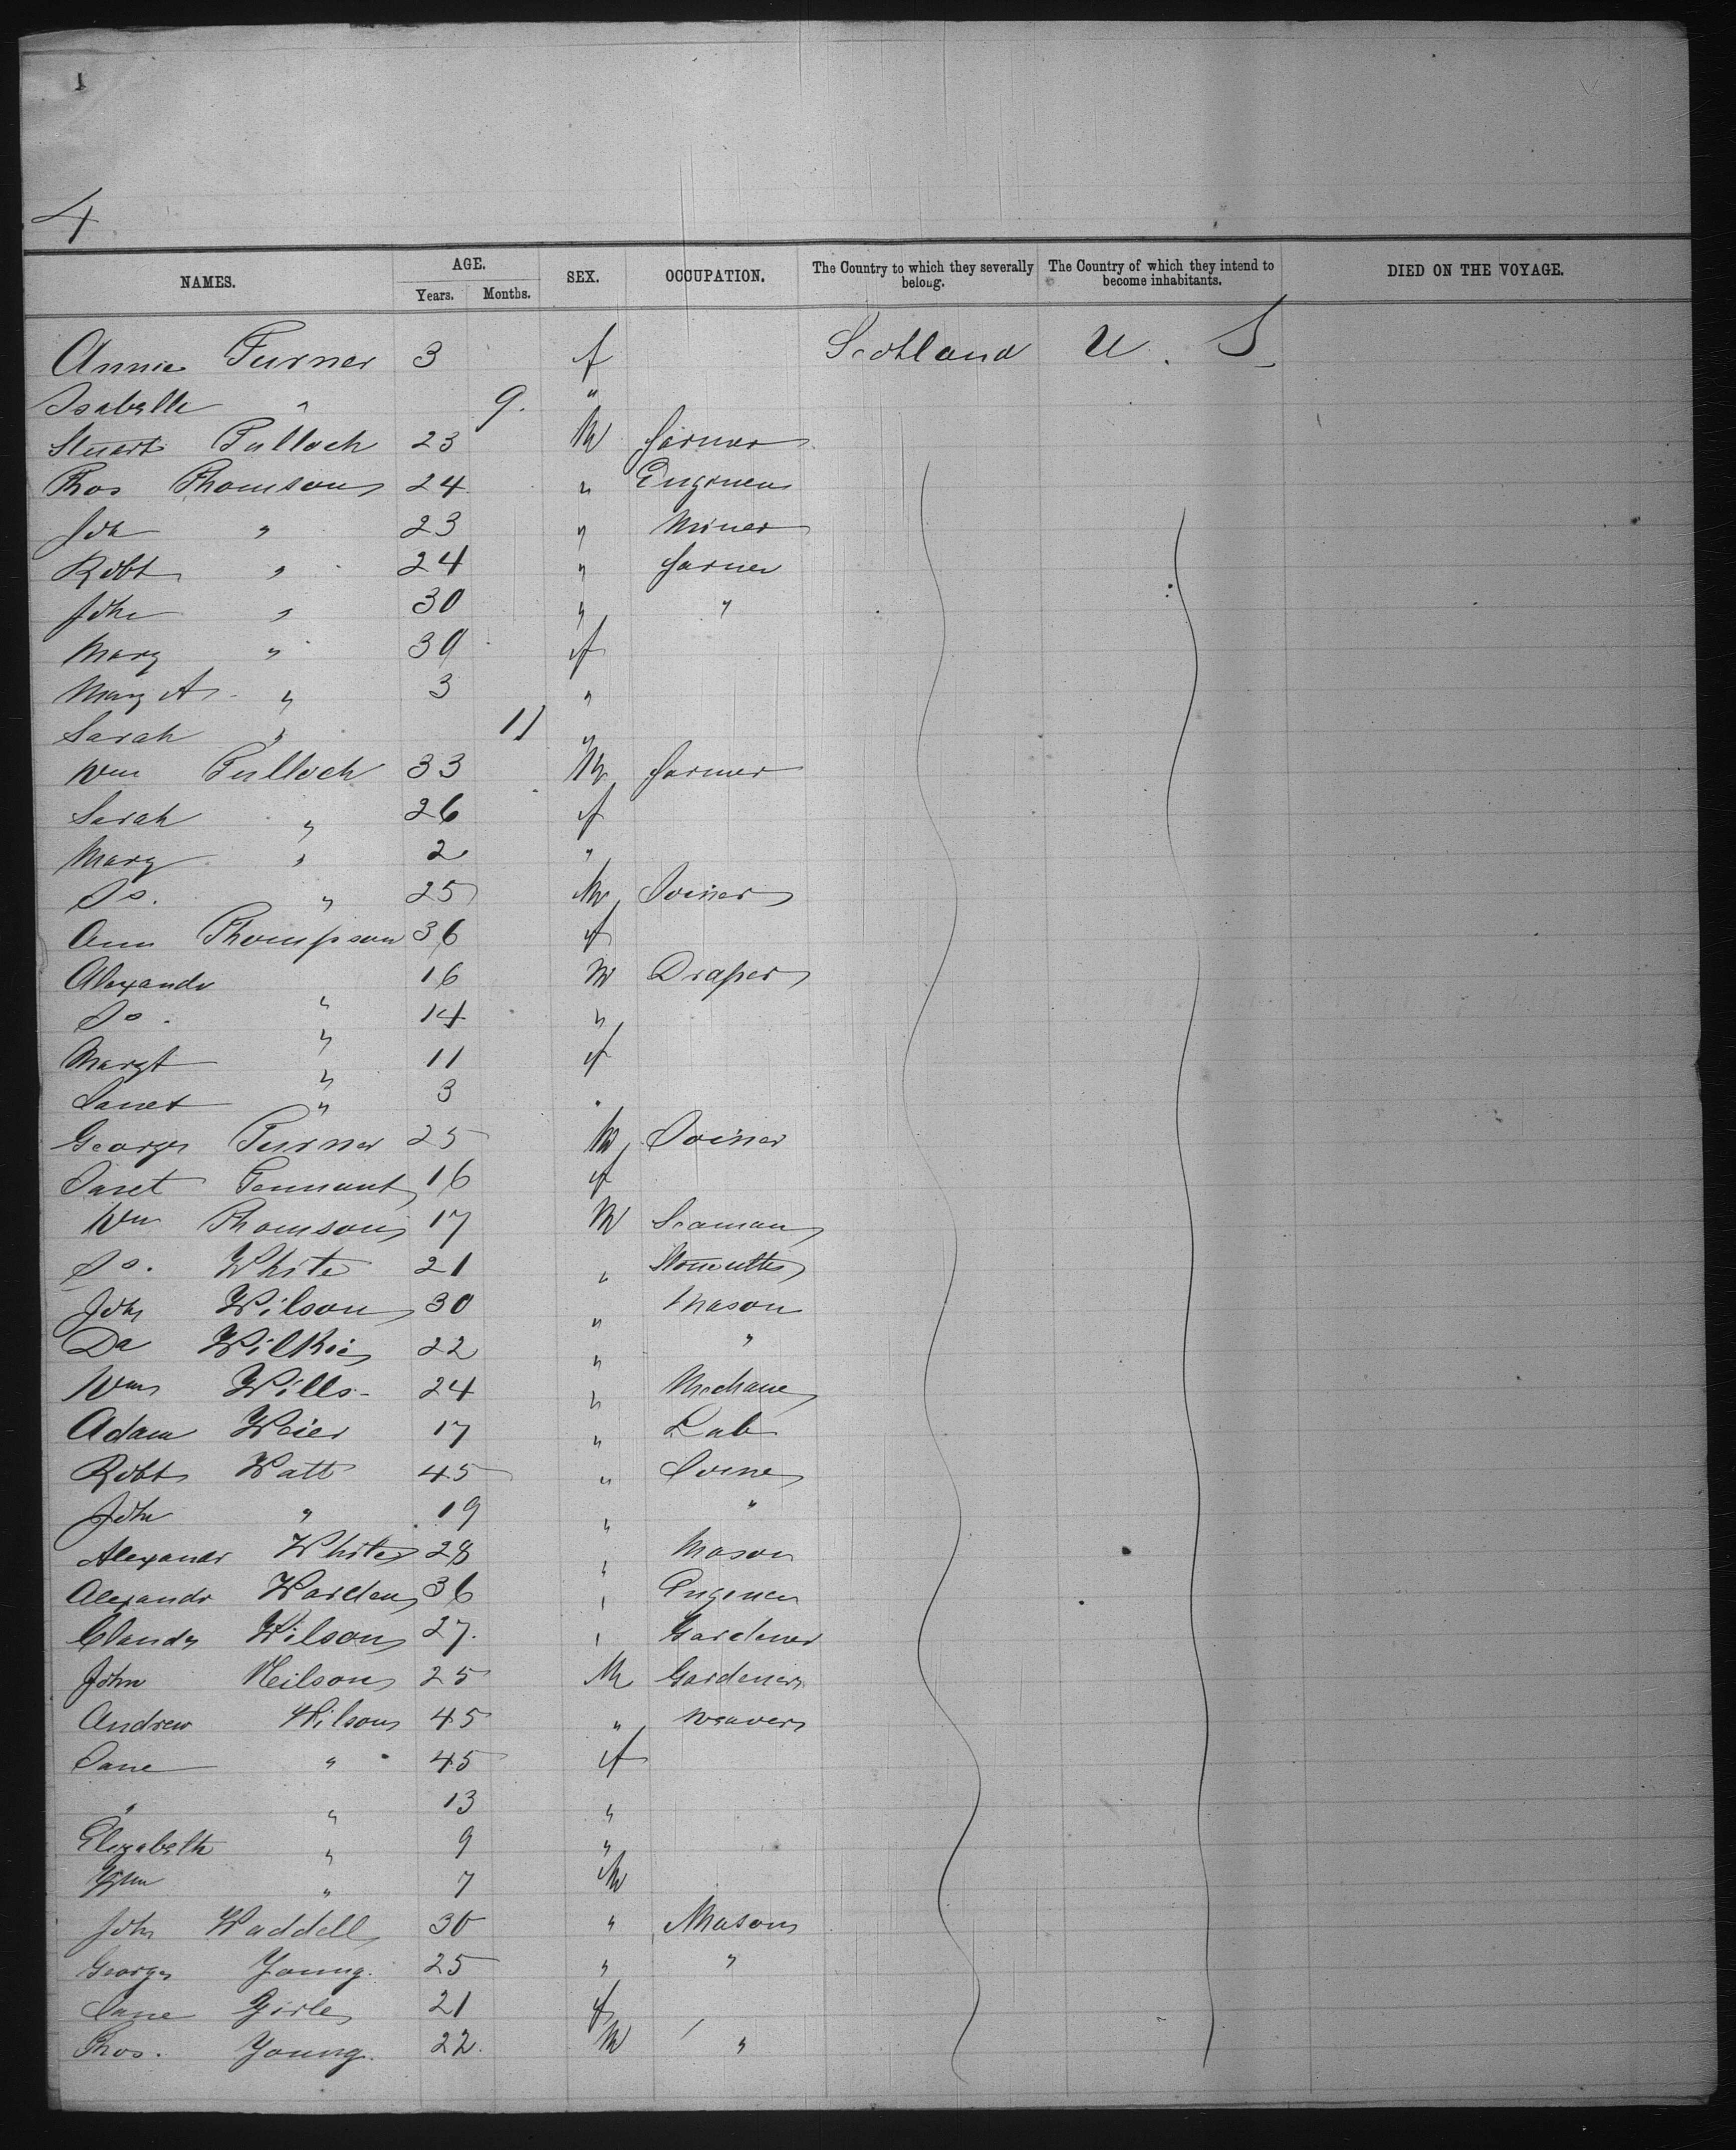 4
NAMES. AGE. Years. Months. SEX. OCCUPATION. The Country to which they severally belong. The Country of which they intend to become inhabitants. DIED ON THE VOYAGE.
Annie Turner 3 f Scotland U. S
Isabella " 9. "
Stuart Tulloch 23 M farmer
Thos Thomson 24 " Engineer
Joh " 23 " Miner
Robt " 24 " farmer
John " 30 " "
Mary " 39 f
Mary A " 3 "
Sarah " 11 "
Wm Tulloch 33 M farmer
Sarah " 26 f
Mary " 2 "
Js. " 25 M Joiner
Ann Thompson 36 f
Alexandr " 16 M Draper
Js. " 14 "
Margt " 11 f
Janet " 3 "
George Turner 25 M Joiner
Janet Tennant 16 f
Wm Thomson 17 M Seaman
Js. White 21 " Stonecutter
John Wilson 30 " Mason
Da Wilkie 22 " "
Wm Wills 24 "
Adam Weier 17 " Lab
Robt Watt 45 " Joiner
John " 19 " "
Alexandr White 28 " Mason
Alexandr Warden 36 " Engineer
Claude Wilson 27. " Gardener
John Neilson 25 M Gardener
Andrew Wilson 45 " Weaver
Jane " 45 f
" " 13 "
Elizabeth " 9 "
Wm " 7 M
John Waddell 30 " Mason
George Young. 25 " "
Jane 21 f
Thos. Young. 22. M "